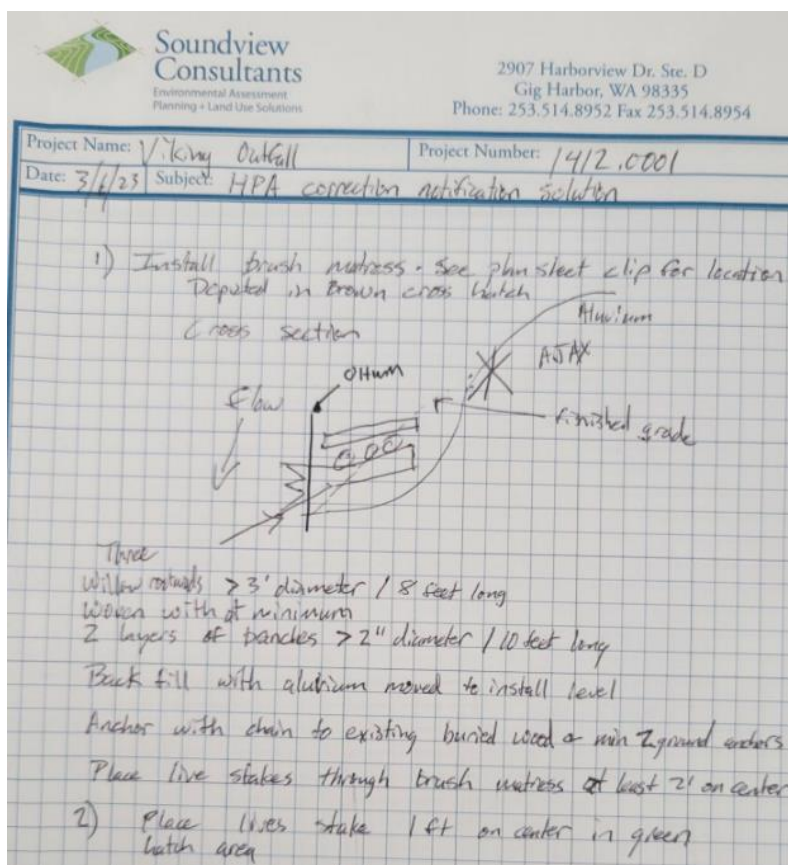 Soundview
Consultants
Environmental Assessment
Planning + Land Use Solutions
2907 Harborview Dr. Ste. D
Gig Harbor, WA 98335
Phone: 253.514.8952 Fax 253.514.8954
Project Name: Viking Outfall
Project Number: 1412.0001
Date: 3/6/23 Subject: HPA correction notification solution
1) Install brush matress. See plan sheet clip for location
Depicted in Brown cross hatch
Cross section
Aluvium
AJAX
OHWM
Flow
Finished grade
Three
Willow rootwads >3' diameter / 8 feet long
Woven with at minimum
2 layers of banches >2" diameter / 10 feet long
Back fill with aluvium moved to install level
Anchor with chain to existing buried wood or min 2 ground anchors
Place live stakes through brush matress at least 2' on center
2) Place lives stake 1 ft on center in green
hatch area